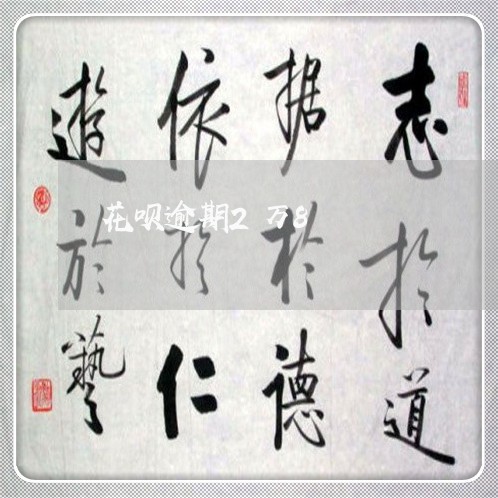 志于道
据於德
依於仁
遊於藝
花呗逾期2万8